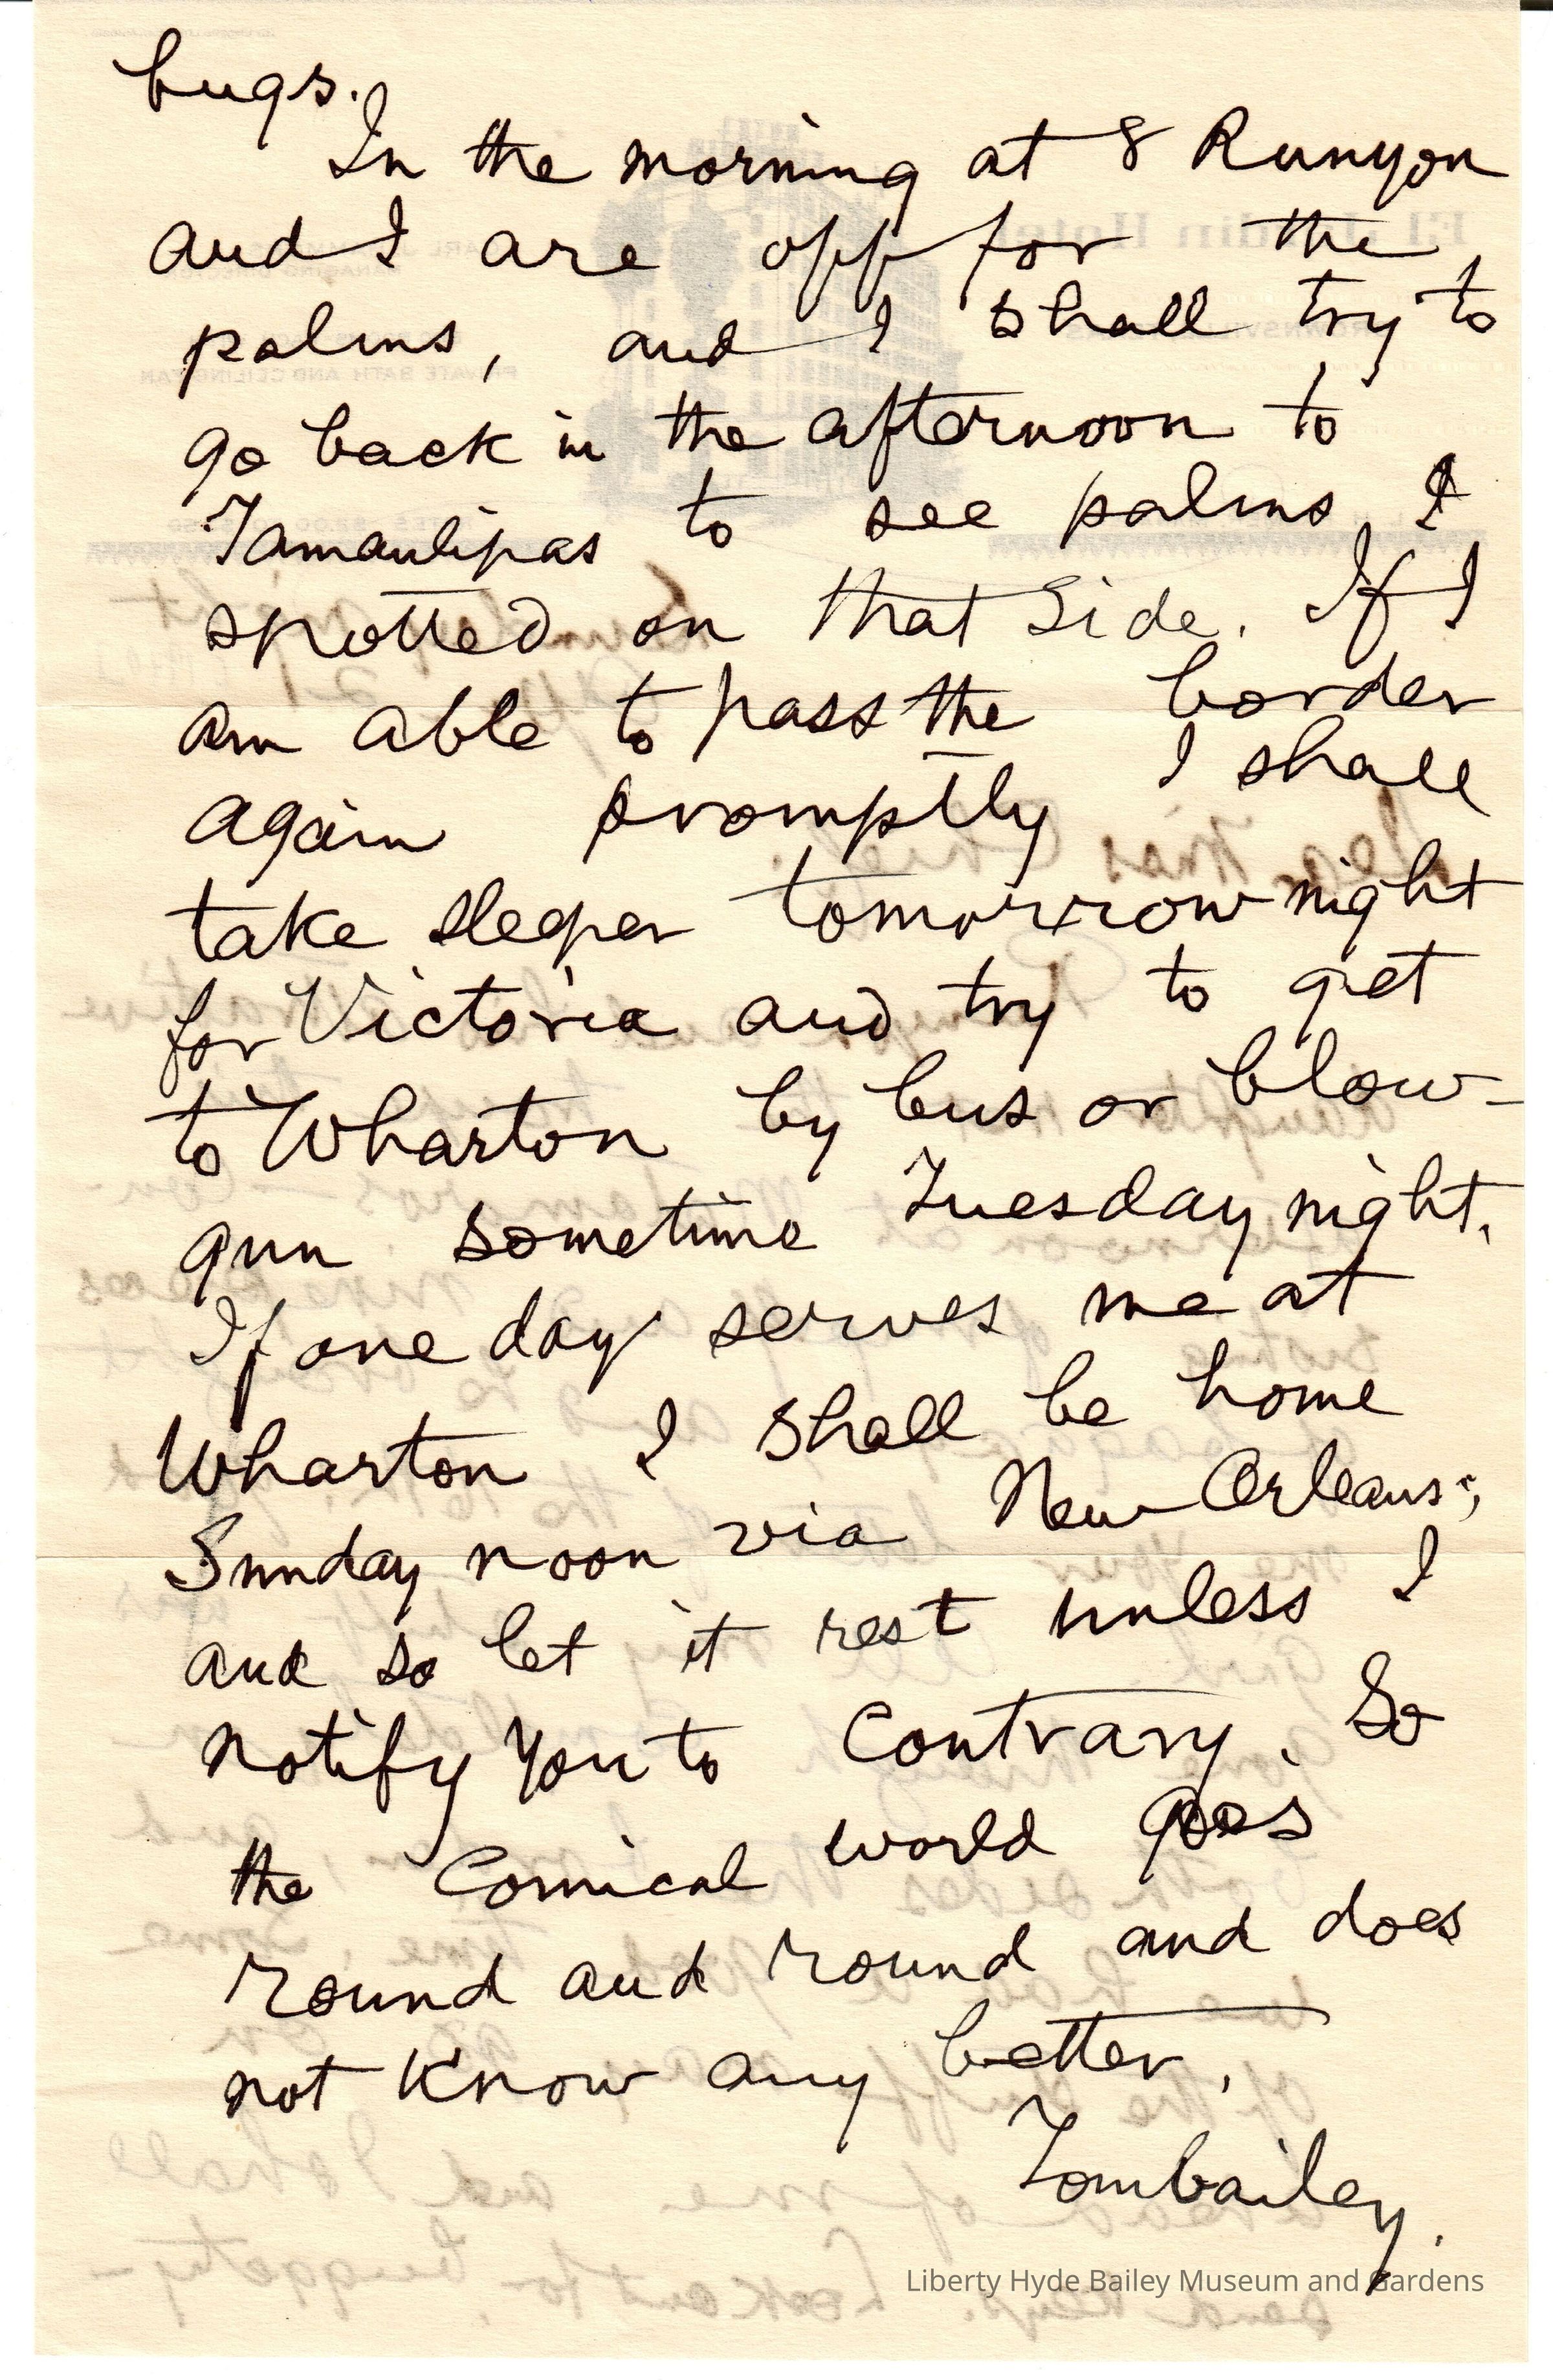 bugs.
In the morning at 8 Runyon
and I are off for the
palms, and I shall try to
go back in the afternoon to
Tamaulipas to see palms I
spotted on that side. If I
am able to pass the border
again promptly I shall
take sleeper tomorrow night
for Victoria and try to get
to Wharton by bus or blow-
gun sometime Tuesday night.
If one day serves me at
Wharton I shall be home
Sunday noon via New Orleans;
and so let it rest unless I
notify you to contrary. So
the comical world goes
round and round and does
not know any better.
Tombailey.
Liberty Hyde Bailey Museum and Gardens